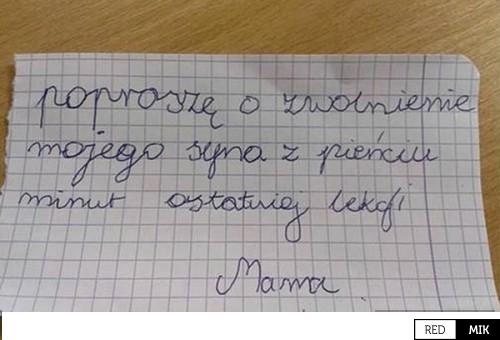 poproszę o zwolnienie
mojego syna z pieńciu
minut ostatniej lekcji
Mama
RED MIK